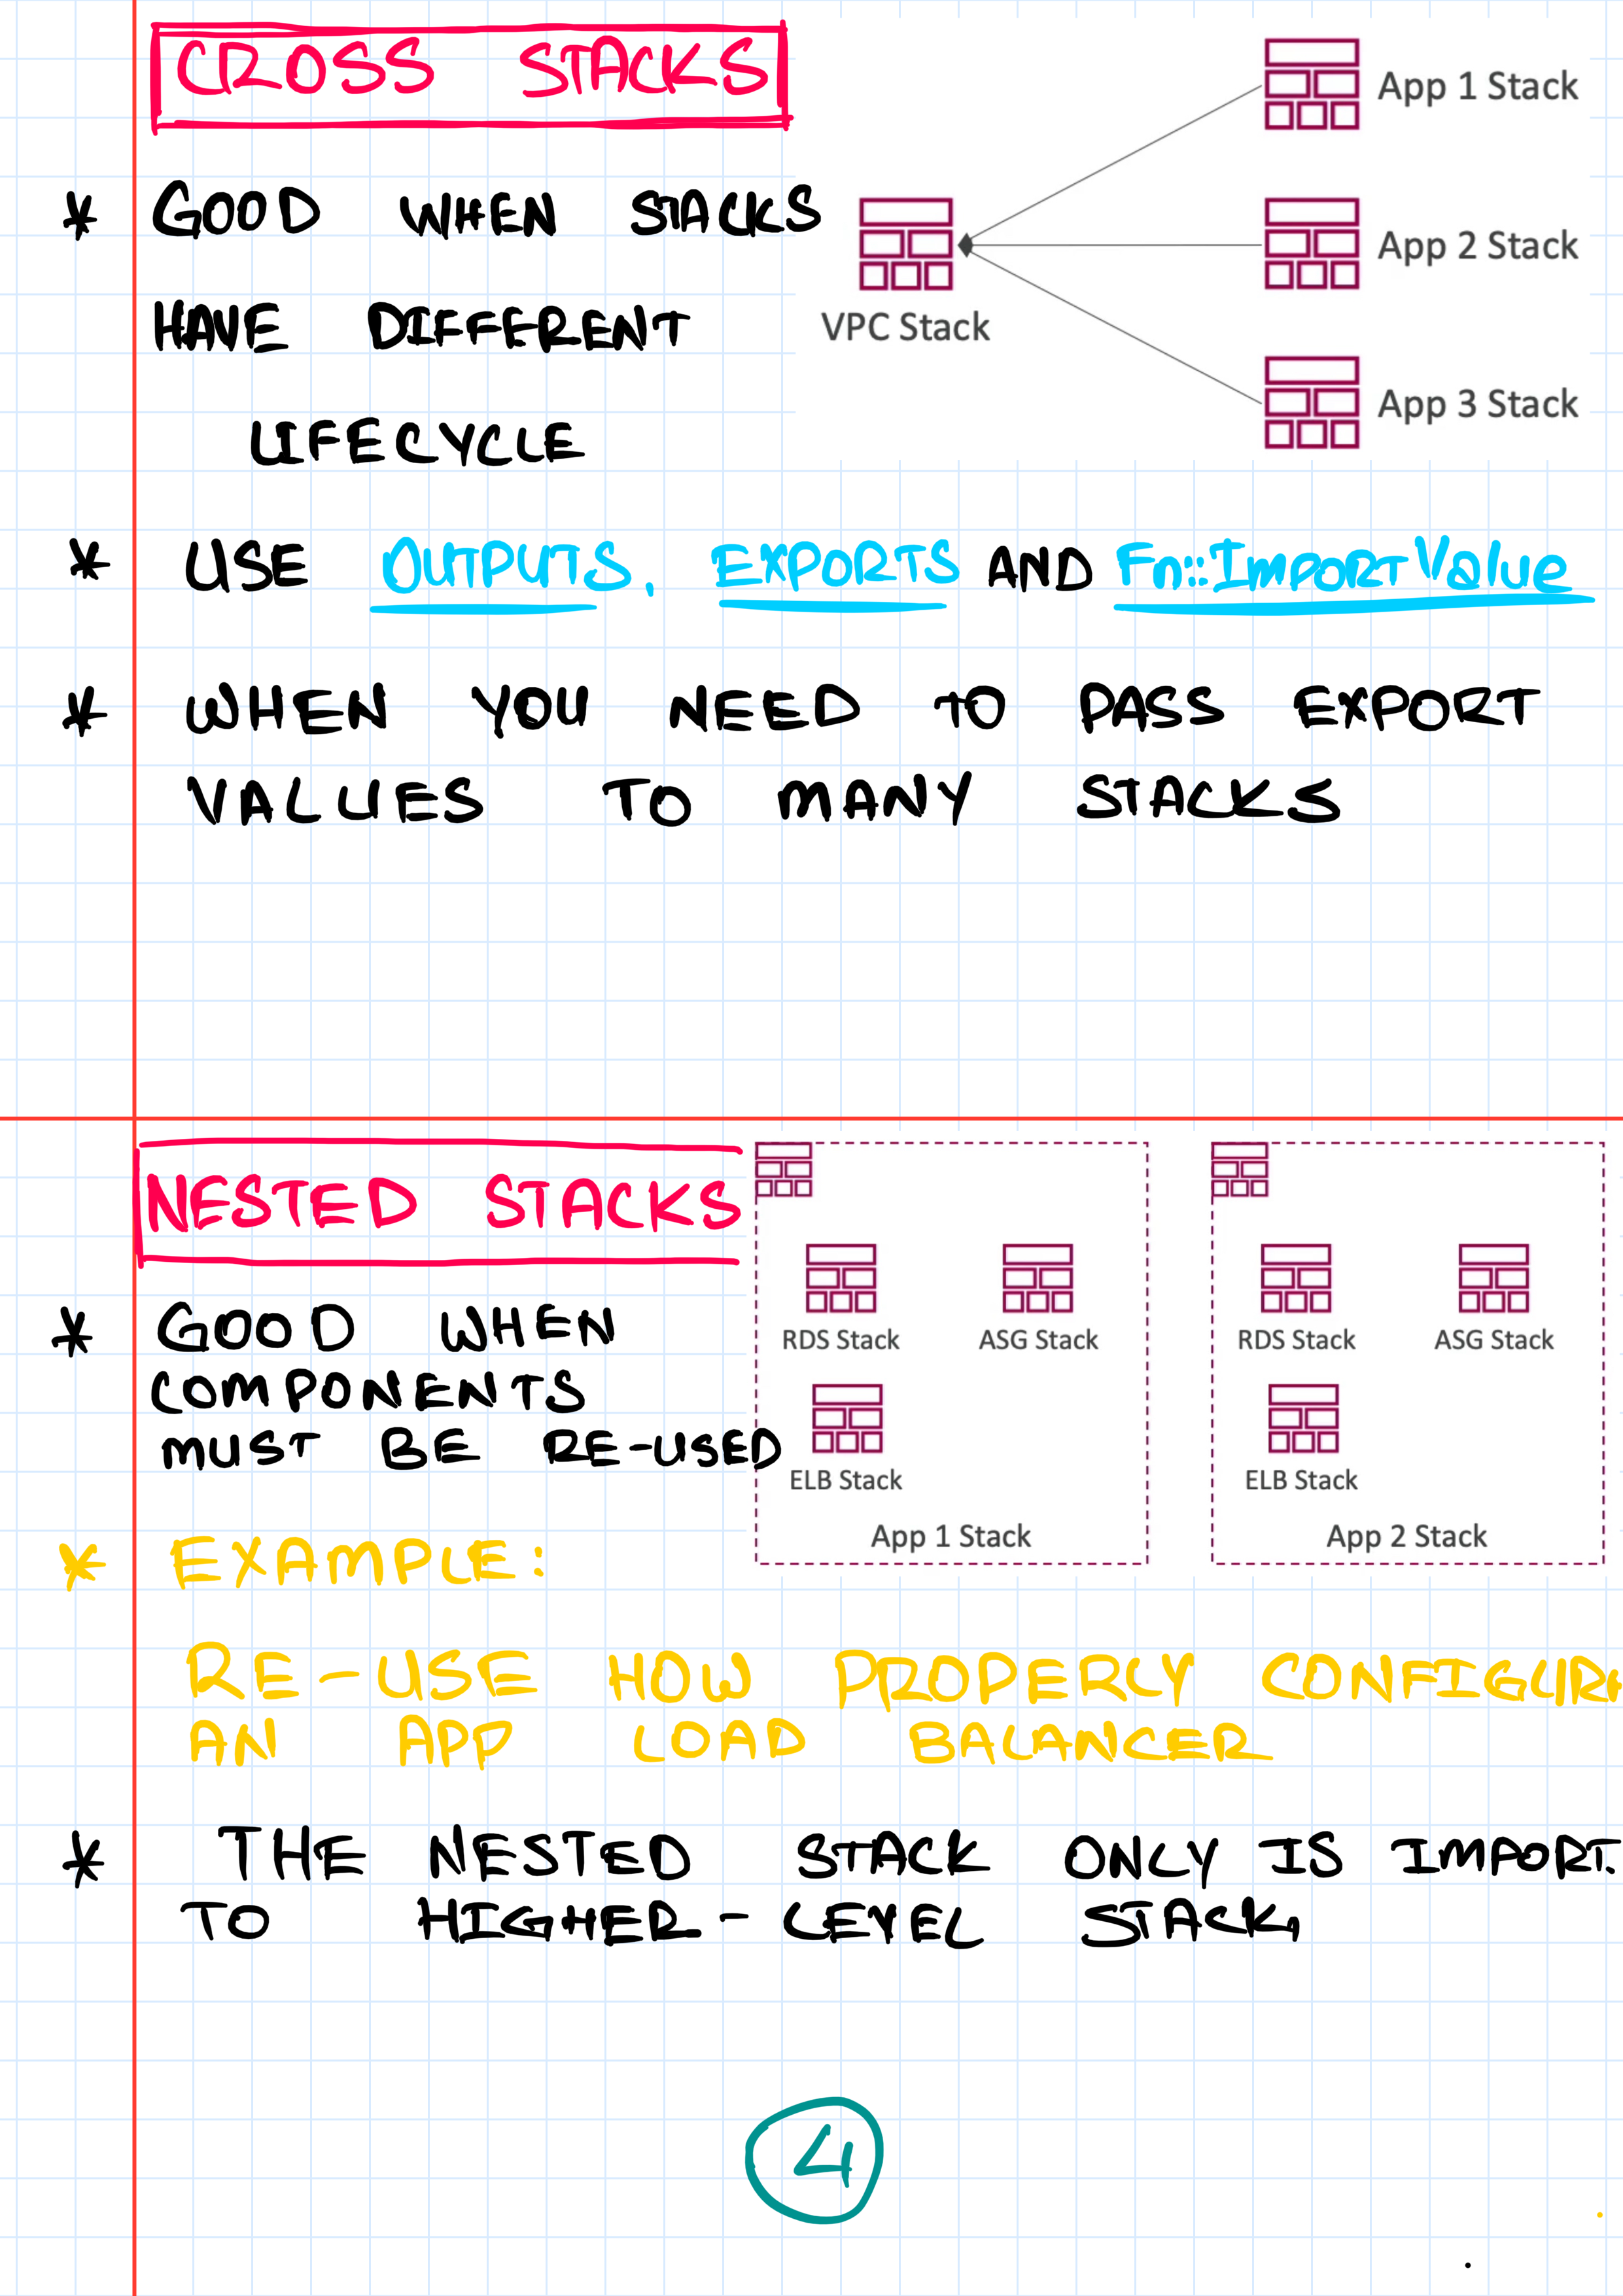 CROSS STACKS
* GOOD WHEN STACKS
HAVE DIFFERENT
LIFECYCLE
VPC Stack
App 1 Stack
App 2 Stack
App 3 Stack
* USE OUTPUTS, EXPORTS AND Fn::ImportValue
* WHEN YOU NEED TO PASS EXPORT
VALUES TO MANY STACKS
NESTED STACKS
* GOOD WHEN
COMPONENTS
MUST BE RE-USED
RDS Stack ASG Stack
ELB Stack
App 1 Stack
RDS Stack ASG Stack
ELB Stack
App 2 Stack
* EXAMPLE:
RE-USE HOW PROPERLY CONFIGUR
AN APP LOAD BALANCER
* THE NESTED STACK ONLY IS IMPORT.
TO HIGHER-LEVEL STACK.
4